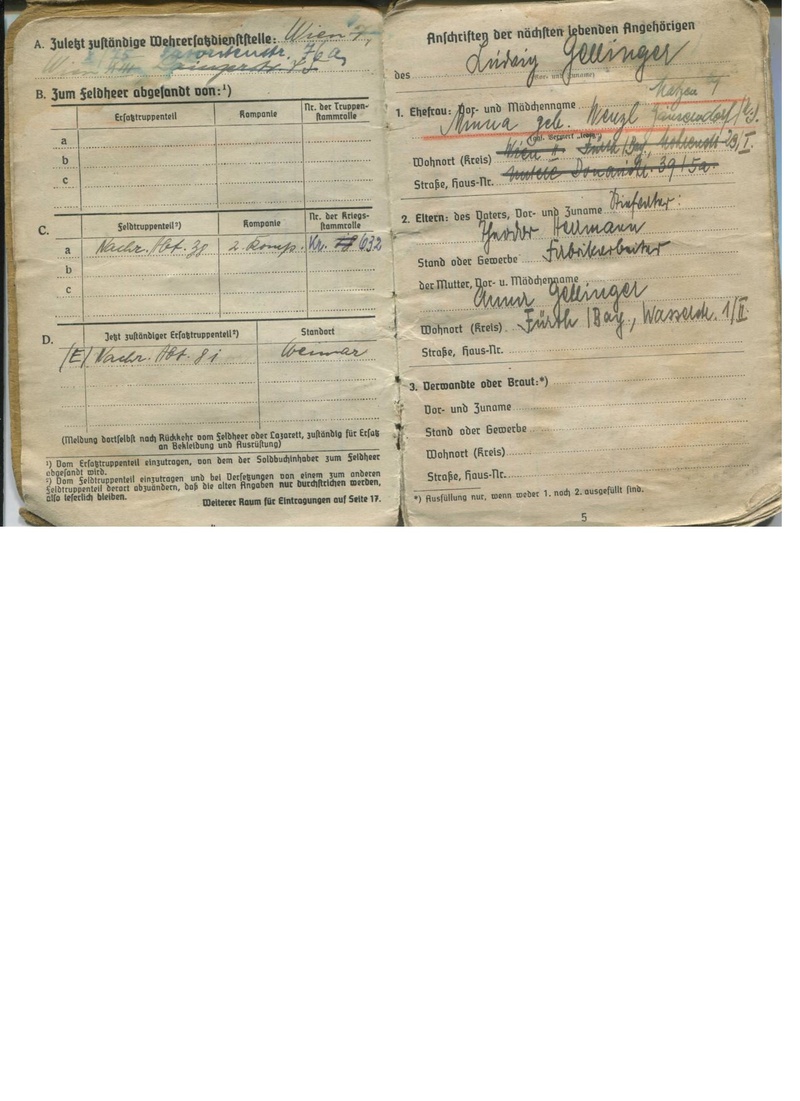 A. Zuletzt zuständige Wehrersatzdienststelle: Wien
B. Zum Feldheer abgesandt von:¹)
Ersatztruppenteil Kompanie Nr. der Truppen-
stammrolle
a
b
c
C. Feldtruppenteil²) Kompanie Nr. der Kriegs-
stammrolle
a Nachr. Abt. 38 2. Komp. Kr. 632
b
c
D. Jetzt zuständiger Ersatztruppenteil²) Standort
(E) Nachr. Abt. 81 Weimar
(Meldung dortselbst nach Rückkehr vom Feldheer oder Lazarett, zuständig für Ersatz
an Bekleidung und Ausrüstung)
¹) Vom Ersatztruppenteil einzutragen, von dem der Soldbuchinhaber zum Feldheer
abgesandt wird.
²) Vom Feldtruppenteil einzutragen und bei Versetzungen von einem zum anderen
Feldtruppenteil derart abzuändern, daß die alten Angaben nur durchstrichen werden,
also leserlich bleiben.
Weiterer Raum für Eintragungen auf Seite 17.
Anschriften der nächsten lebenden Angehörigen
des Ludwig Gellinger
(Vor- und Zuname)
1. Ehefrau: Vor- und Mädchenname
Minna geb. Wenzl
Wohnort (Kreis) Wien Fürth /Bay.
Straße, Haus-Nr. Untere Donaustr. 39/5a.
2. Eltern: des Vaters, Vor- und Zuname Stiefvater:
Theodor Hellmann
Stand oder Gewerbe Fabrikarbeiter
der Mutter, Vor- u. Mädchenname
Anna Gellinger
Wohnort (Kreis) Fürth /Bay., 1/II
Straße, Haus-Nr.
3. Verwandte oder Braut:*)
Vor- und Zuname
Stand oder Gewerbe
Wohnort (Kreis)
Straße, Haus-Nr.
*) Ausfüllung nur, wenn weder 1. noch 2. ausgefüllt sind.
5